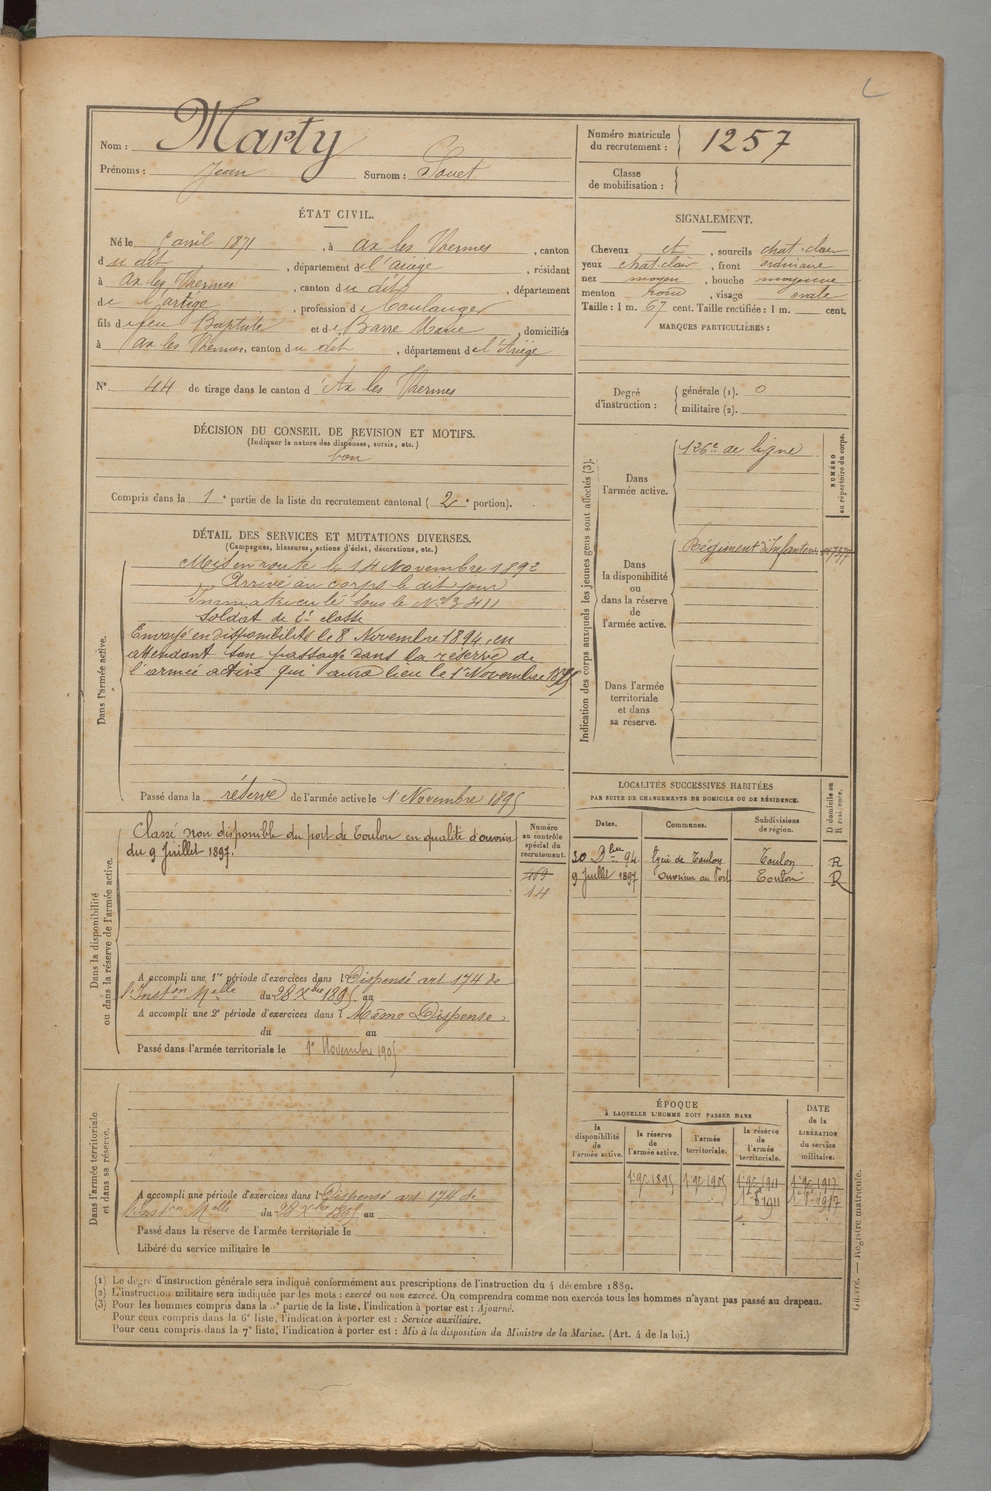 Nom : Marty
Prénoms : Jean Surnom :
Numéro matricule du recrutement : 1257
Classe de mobilisation :
ÉTAT CIVIL.
Né le avril 1871, à ax les Thermes, canton
du dit, département de l'ariège, résidant
à ax les Thermes, canton du dit, département
de l'ariège, profession de boulanger
fils de feu Baptiste et de Barre Marie, domiciliés
à ax les Thermes, canton du dit, département de l'Ariège
N° 44 de tirage dans le canton d'Ax les Thermes
SIGNALEMENT.
Cheveux et, sourcils chat. clair
yeux chat. clair, front ordinaire
nez moyen, bouche moyenne
menton rond, visage ovale
Taille : 1 m. 67 cent. Taille rectifiée : 1 m. cent.
MARQUES PARTICULIÈRES :
Degré d'instruction : générale (1). 0
militaire (2).
DÉCISION DU CONSEIL DE REVISION ET MOTIFS.
(Indiquer la nature des dispenses, sursis, etc.)
bon
Compris dans la 1e partie de la liste du recrutement cantonal (2e portion).
DÉTAIL DES SERVICES ET MUTATIONS DIVERSES.
(Campagnes, blessures, actions d'éclat, décorations, etc.)
Dans l'armée active.
Mis en route le 14 Novembre 1892
Arrivé au corps le dit jour
Immatriculé sous le N°
Soldat de 2e classe
Envoyé en disponibilité le 8 Novembre 1894, en
attendant son passage dans la réserve de
l'armée active qui aura lieu le 1er Novembre 1895
Passé dans la réserve de l'armée active le 1 Novembre 1895
Indication des corps auxquels les jeunes gens sont affectés (3).
NUMÉRO au répertoire du corps.
Dans l'armée active.
126e de ligne
Dans la disponibilité ou dans la réserve de l'armée active.
Régiment d'Infanterie
Dans l'armée territoriale et dans sa réserve.
Dans la disponibilité ou dans la réserve de l'armée active.
Numéro au contrôle spécial du recrutement.
Classé non disponible du port de Toulon en qualité d'ouvrier
du 9 Juillet 1897.
14
A accompli une 1re période d'exercices dans l Dispensé art 174 de
l'Inston Melle du 28 Xbre 1895 au
A accompli une 2e période d'exercices dans l Même Dispense
du au
Passé dans l'armée territoriale le 1er Novembre 1905
LOCALITÉS SUCCESSIVES HABITÉES
PAR SUITE DE CHANGEMENTS DE DOMICILE OU DE RÉSIDENCE.
Dates. Communes. Subdivisions de région. D domicile ou R résidence.
30 Dbre 94 Toulon Toulon R
9 Juillet 1897 Ouvrier au Port Toulon R
ÉPOQUE
À LAQUELLE L'HOMME DOIT PASSER DANS
DATE de la LIBÉRATION du service militaire.
la disponibilité de l'armée active. la réserve de l'armée active. l'armée territoriale. la réserve de l'armée territoriale.
1 9e 1895 1 9e 1905 1 9e 1911 1 9e 1917
1911 1917
Dans l'armée territoriale et dans sa réserve.
A accompli une période d'exercices dans l Dispensé art 174 de
l'Inston Melle du 28 Xbre 1895 au
Passé dans la réserve de l'armée territoriale le
Libéré du service militaire le
(1) Le degré d'instruction générale sera indiqué conformément aux prescriptions de l'instruction du 4 décembre 1889.
(2) L'instruction militaire sera indiquée par les mots : exercé ou non exercé. On comprendra comme non exercés tous les hommes n'ayant pas passé au drapeau.
(3) Pour les hommes compris dans la partie de la liste, l'indication à porter est : Ajourné.
Pour ceux compris dans la 6e liste, l'indication à porter est : Service auxiliaire.
Pour ceux compris dans la 7e liste, l'indication à porter est : Mis à la disposition du Ministre de la Marine. (Art. 4 de la loi.)
Guerre. — Registre matricule.